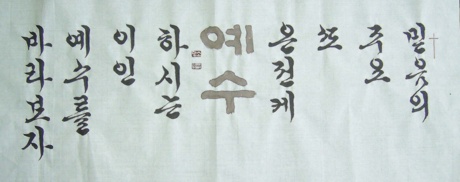 믿음의
주요
또
온전케
예수
하시는
이인
예수를
바라보자